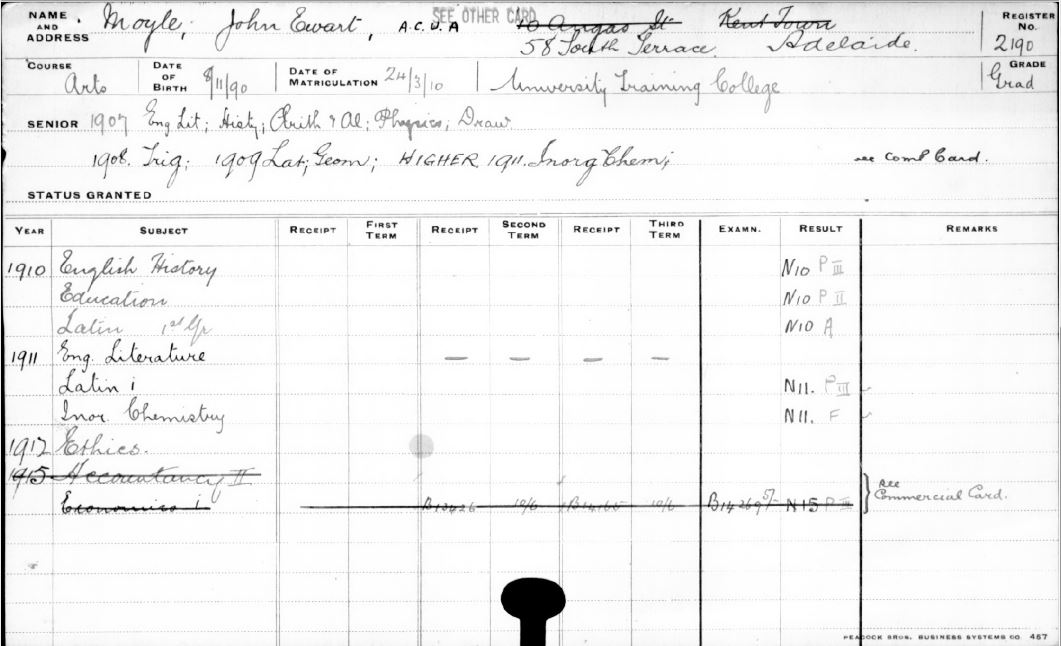 SEE OTHER CARD
NAME AND ADDRESS Moyle, John Ewart, A.C.U.A 10 Angas St Kent Town REGISTER No. 2190
58 South Terrace Adelaide.
COURSE Arts DATE OF BIRTH 8/11/90 DATE OF MATRICULATION 24/3/10 University Training College GRADE Grad
SENIOR 1907 Eng Lit; Histy; Arith & Al; Physics; Draw
1908. Trig; 1909 Lat; Geom; HIGHER 1911. Inorg Chem; see Coml Card.
STATUS GRANTED
YEAR SUBJECT RECEIPT FIRST TERM RECEIPT SECOND TERM RECEIPT THIRD TERM EXAMN. RESULT REMARKS
1910 English History N10 P III
Education N10 P II
Latin 1st Yr N10 A
1911 Eng. Literature — — — —
Latin i N11. P III
Inor. Chemistry N11. F
1912 Ethics.
1915 Accountancy II
Economics i B13426 10/6 B14165 10/6 B14269 5/- N15 P III
see Commercial Card.
PEACOCK BROS. BUSINESS SYSTEMS CO. 457